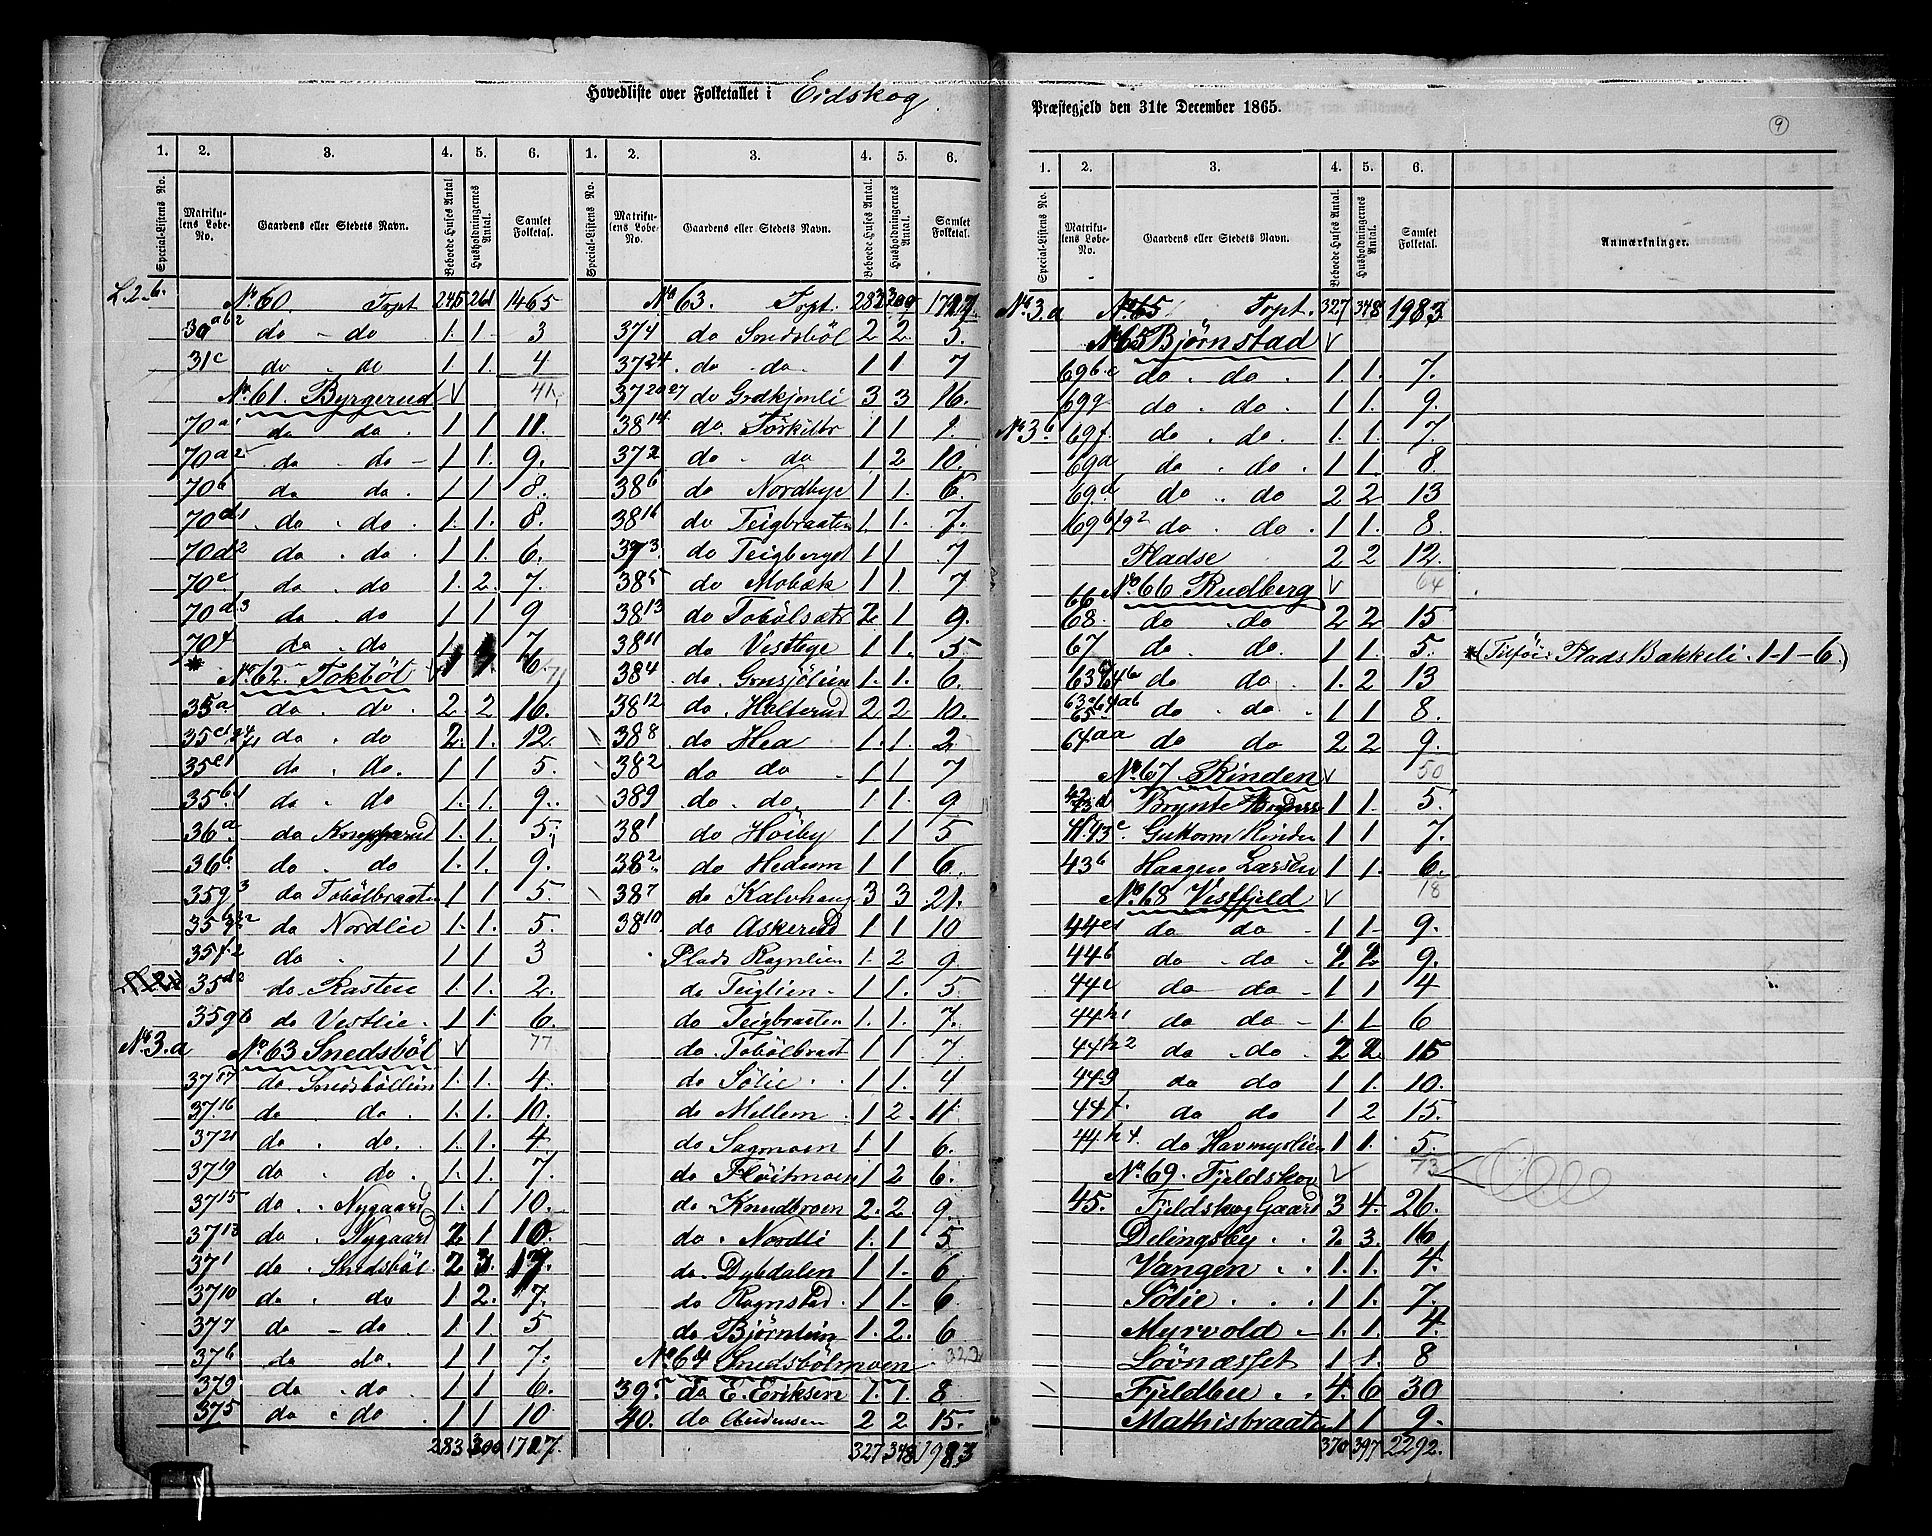 Hovedliste over Folketallet i Eidskog
Præstegjeld den 31te December 1865.
9
1. 2. 3. 4. 5. 6. 1. 2. 3. 4. 5. 6.
Special-Listens No. Matrikulens Løbe-No. Gaardens eller Stedets Navn. Beboede Huses Antal Husholdningernes Antal. Samlet Folketal. Special-Listens No. Matrikulens Løbe-No. Gaardens eller Stedets Navn. Beboede Huses Antal. Husholdningernes Antal. Samlet Folketal.
L. 2. b. No. 60. Tspt. 245 261 1465
30 ab2 do - do 1. 1. 3
31c do . do 1. 1. 4
No. 61. Byrgerud 41
70a1 do do . 1 1 11.
70a2 do . do - 1 1. 9.
70b do do . 1 1 8.
70d1 do . do . 1. 1. 8.
70d2 do . do . 1 1. 6.
70e do . do 1. 2. 7.
70d3 do do 1 1 9
70f do . do 1. 1 7
* No. 62 Tokböl 1 1 6. 71
35a do . do 2. 2 16.
35c do . do 2. 1. 12.
35e1 do . do. 1 1 5.
35b1 do . do 1. 1. 9.
36a do 1. 1. 5.
36b. do . do 1. 1. 9.
35g3 do Tobölbraaten 1 1 5.
do Nordlie 1. 1. 5.
35f2 do . 1 1 3
35d2 do Rastie 1. 1 2.
35g do Vestlie . 1 1 6.
No. 3. a No. 63 Snedsböl 77
3717 do Snedsböllien 1. 1. 4.
37.16 do do . 1. 1. 10.
3721 do . do. 1. 1. 4
3719 do . do . 1. 1. 7.
3715 do . Nygaard 1. 1 10.
3713 do . Nygaard 2 1 10.
371 do . Snedsböl 2 3. 19.
3710 do . do 1 2. 7.
377 do - do 1 1. 5
376 do do. 1 1 7.
379 do . do 1 1 6.
375 do . do . 1 1 10
283 300 1727.
No. 63. Tspt. 283 300 1727.
374 do Snedsböl 2 2. 5.
3724 do do. 1 1 7
3720 27 do 3 3 16.
3814 do. 1 1 1.
372 do . do 1 2 10.
386 do Nordbye 1 1. 6.
3816 do Teigbraaten 1 1. 7.
373. do Teigberget 1 1 7
385 do Mobæk 1 1. 7
3813 do Tobölsætr 2. 1 9.
3811 do . Vesttege 1 1. 5
384 do. 1. 1. 6.
3812 do. Holterud 2 2 10.
388 do Hea 1. 1. 2
382 do do 1 1 7
389 do . do, 1 1. 9
381 do Höiby 1 1. 5
382 do Hedum 1 1 6.
387 do Kalvhaug 3 3 21.
3810. do Askerud 1 1 10
. Plads Ragnlien 1. 2 9.
do Teiglien . 1 1. 5
do Teigbraaten 1. 1. 7.
do . Tobölbraat 1 1 7
do Sölie . . 1 1. 4
do Mellem . 1 2. 11.
do Sagmoen 1 1 6.
do Flöitmoen 1 2 6.
do Knudbroen 2. 2. 9.
do . Nordli 1. 1 5
do . Dybdalen 1 1. 6
do Ragnstad . 1 1. 6.
do Björnlien 1. 2. 6
No. 64 Snedsbölmoen . 323
39. do E. Eriksen 1. 1. 8
40. do Andersen 2 2 15.
327 348 1983
1. 2. 3. 4. 5. 6.
Special-Listens No. Matrikulens Løbe-No. Gaardens eller Stedets Navn. Beboede Huses Antal. Husholdningernes Antal. Samlet Folketal Anmærkninger.
No. 3. a No. 65 Tspt. 327 348 1983
No. 65 Bjørnstad
69b.c do . do . 1. 1. 7.
69g do . do. 1 1. 9.
No. 3.b 69f. do . do . 1. 1. 7.
69a do . do . 1 1. 8.
69.d do . do 2 2 13
do . do . 1 1. 8.
Pladse 2 2 12.
No. 66 Rudberg 64
66 68. do . do 2 2 15
67 do . do. 1 1. 5. * (Tilföi: Plads Bakkeli . 1 - 1 - 6.)
do do . 1. 2 13
do . do . 1 1 8.
64.aa do do 2 2 9.
No. 67 Rinden 50
Brynte 1 1. 5.
43c. Guttorm Rinden 1 1 7.
43b Haagen Larsen 1 1. 6.
No. 68 Vestfjeld 18
44e1 do do - 1 1. 9.
44b do . do . 2 2 9.
44c do do - 1 1 4
44h1 do do - 1. 1 6
44h2 do . do . 2 2 15
44g do do 1 1. 10.
44f. do do 1 2 15.
44h4. do Havmyrlien 1 1. 5.
No. 69. Fjeldskov 73
45. Fjeldskog Gaard 3 4. 26.
Delingsby . . 2 3. 16
Vangen . . 1. 1. 4.
Sölie . . . 1 1. 7.
Myrvold . 1. 1. 4.
Lövnæsset 1 1. 8
Fjeldbu . . 4. 6 30
Mathisbraaten 1 1 9.
370 397 2292.